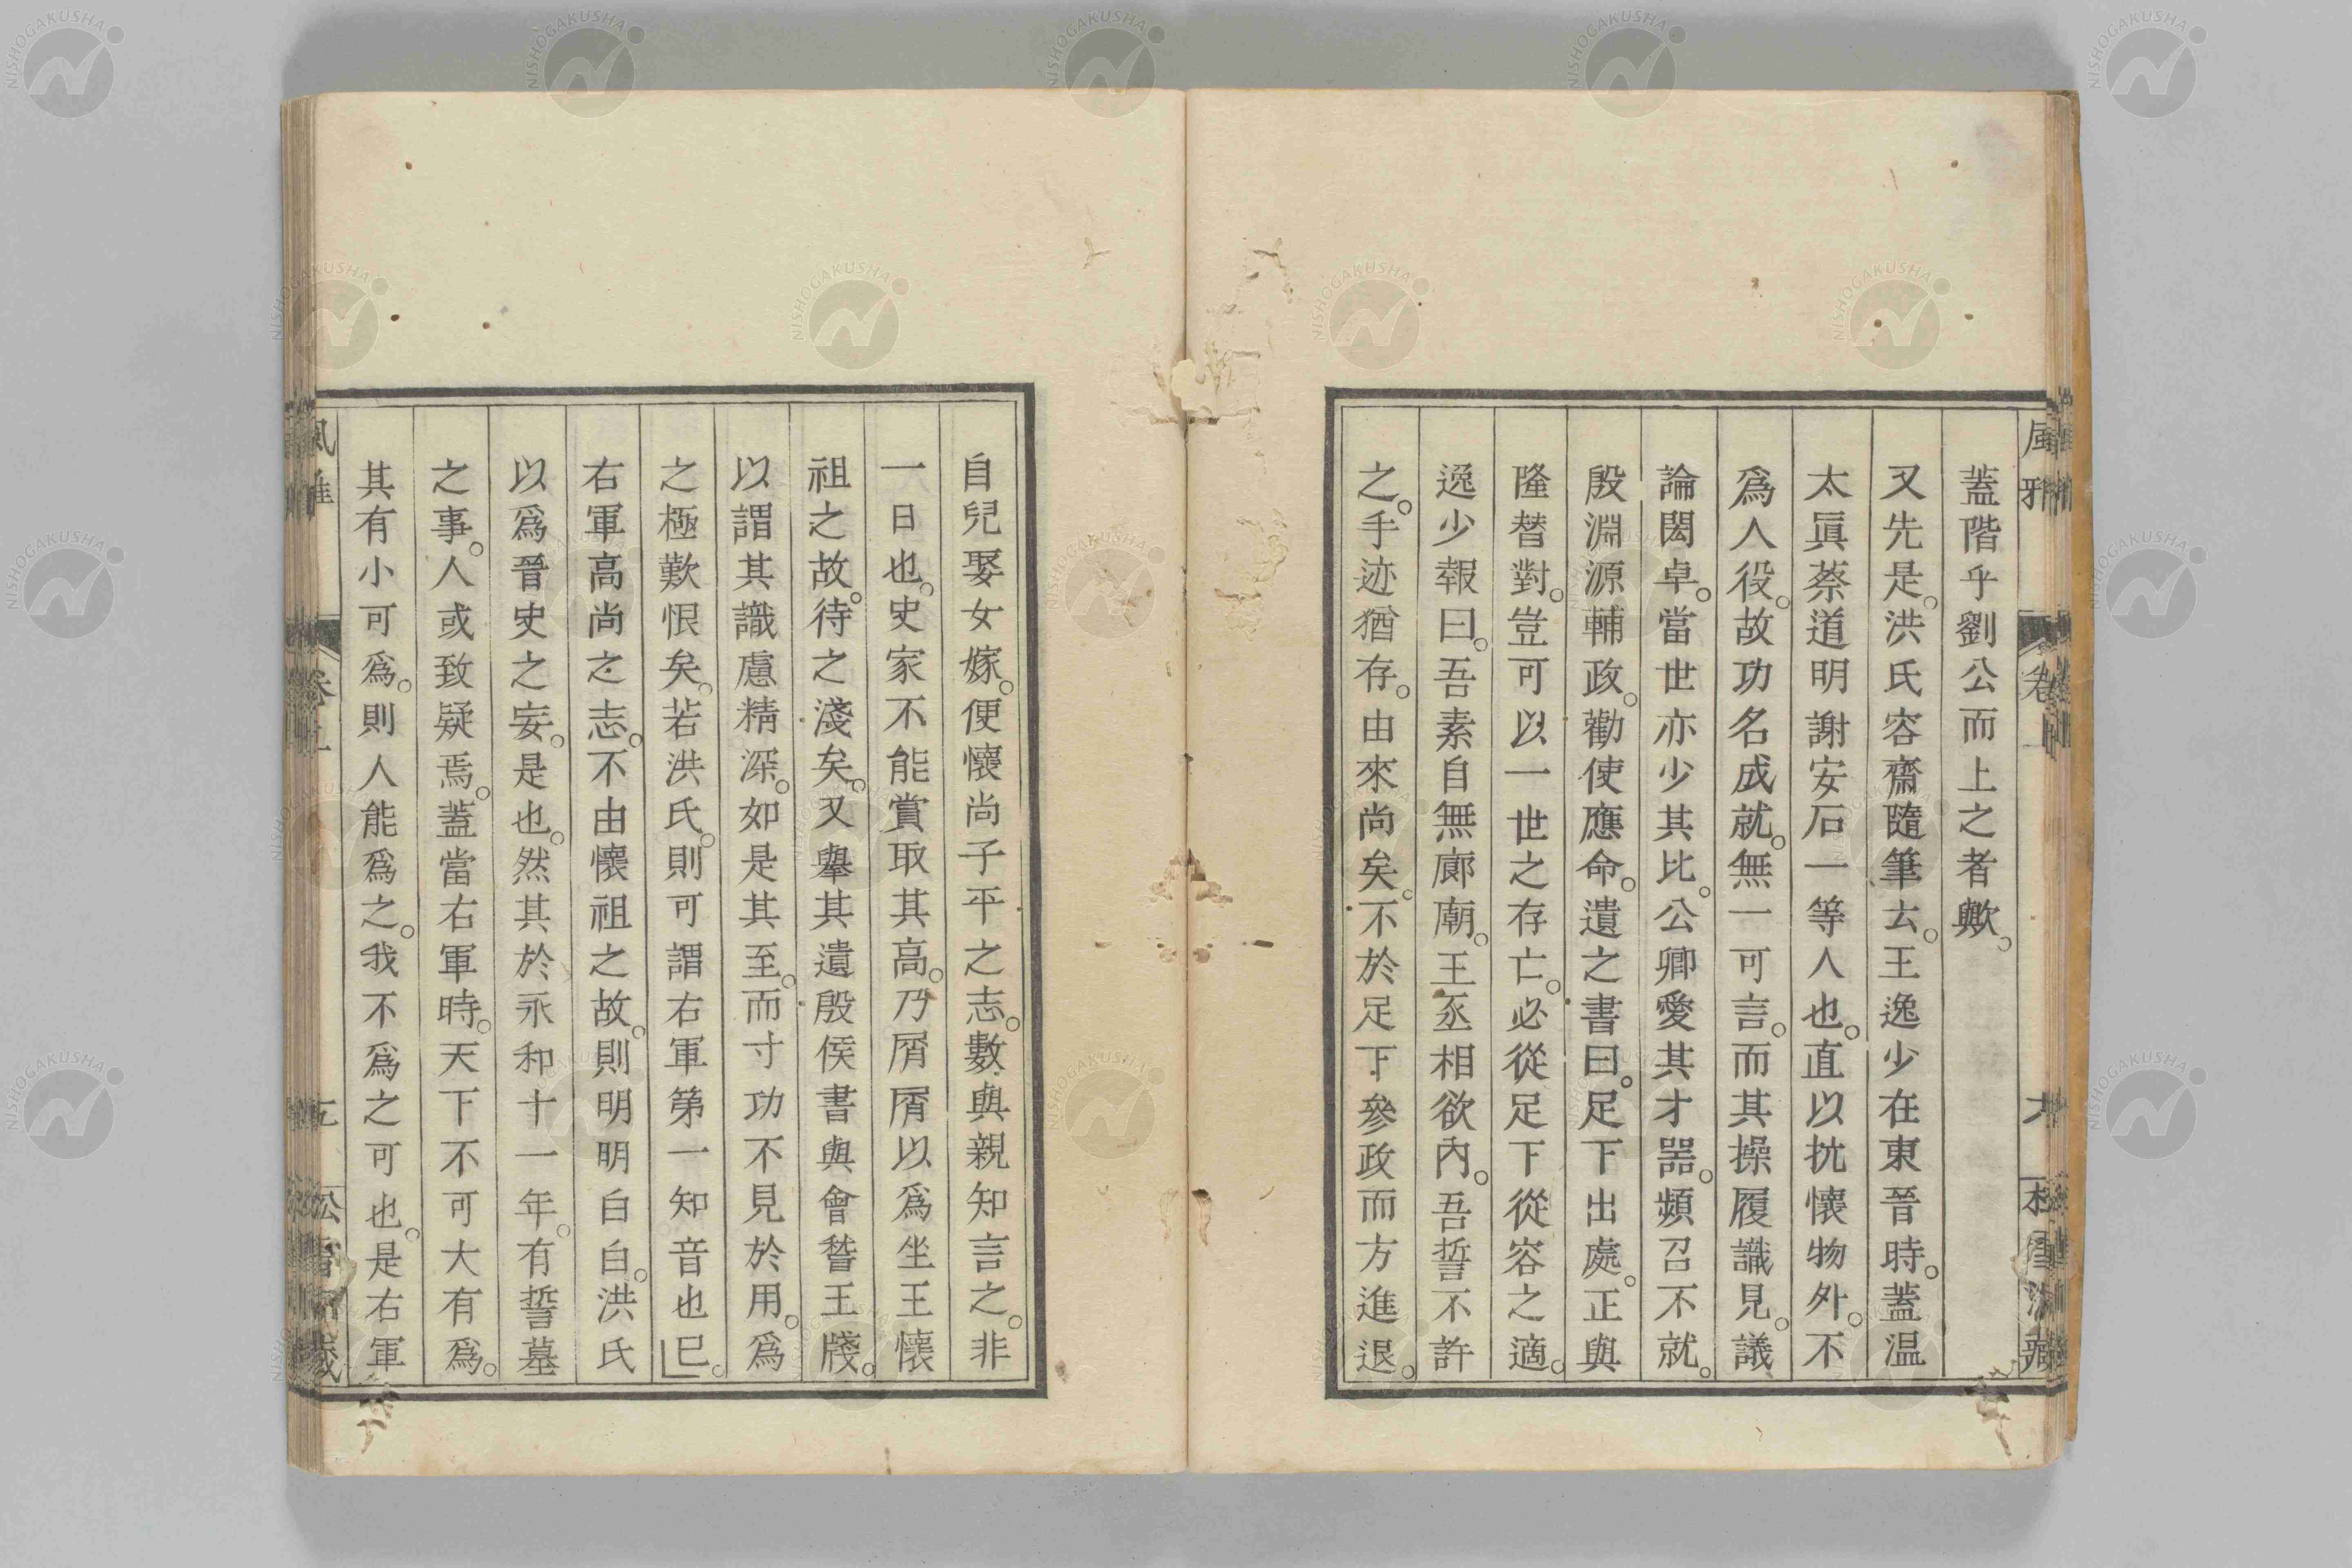 蓋階乎劉公而上之者歟。
又先是。洪氏容齋隨筆云。王逸少在東晉時。蓋温
太眞蔡道明謝安石一等人也。直以抗懷物外。不
爲人役。故功名成就。無一可言。而其操履識見。議
論閎卓。當世亦少其比。公卿愛其才器。頻召不就。
殷淵源輔政。勸使應命。遺之書曰。足下出處。正與
隆替對。豈可以一世之存亡。必從足下從容之適。
逸少報曰。吾素自無廊廟。王丞相欲內。吾誓不許
之。手迹猶存。由來尚矣。不於足下參政而方進退。
自兒娶女嫁。便懷尚子平之志。數與親知言之。非
一日也。史家不能賞取其高。乃屑屑以爲坐王懷
祖之故。待之淺矣。又舉其遺殷侯書與會稽王牋。
以謂其識慮精深。如是其至。而寸功不見於用。爲
之極歎恨矣。若洪氏。則可謂右軍第一知音也已。
右軍高尚之志。不由懷祖之故。則明明白白。洪氏
以爲晉史之妄。是也。然其於永和十一年。有誓墓
之事。人或致疑焉。蓋當右軍時。天下不可大有爲。
其有小可爲。則人能爲之。我不爲之可也。是右軍